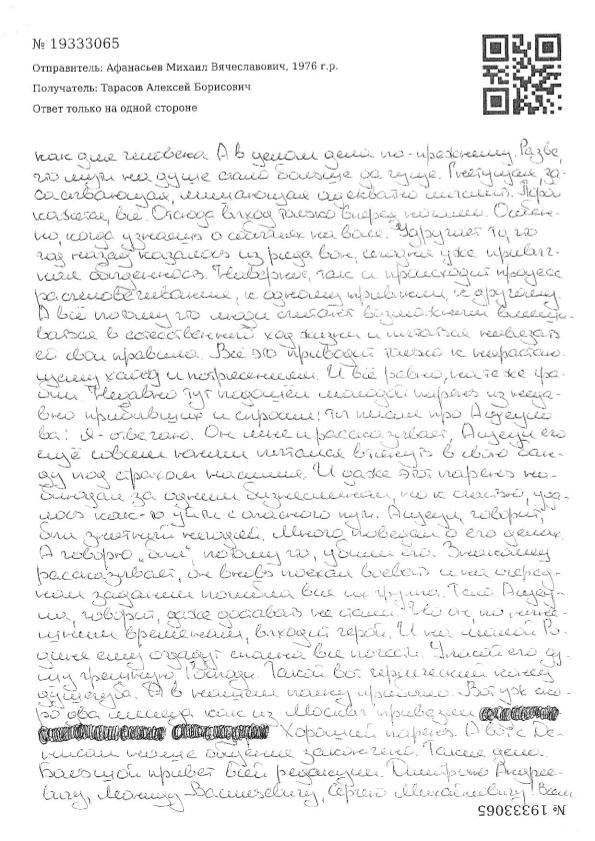 № 19333065
Отправитель: Афанасьев Михаил Вячеславович, 1976 г.р.
Получатель: Тарасов Алексей Борисович
Ответ только на одной стороне
как для человека. А в целом дела по-прежнему. Разве,
что мути на душе стало больше да гуще. Гнетущая, за-
сасывающая, лишающая адекватно мыслить. Пора
кажется, всё. Отсюда выход только вперед ногами. Особен-
но, когда узнаешь о событиях на воле. Удручает то, что
год назад казалось из ряда вон, сегодня уже привыч-
ная обыденность. Наверное, так и происходит процесс
расчеловечивания, к одному привыкли, к другому.
А всё потому что люди считают возможным вмеши-
ваться в естественный ход жизни и пытаться навязать
ей свои правила. Всё это приводит только к нарастаю-
щему хаосу и потрясениям. И всё равно, на те же гра-
бли. Недавно тут подошёл молодой парень из неда-
вно прибывших и спросил: ты писал про
ва? Я отвечаю. Он мне и рассказывает, его
ещё совсем юным пытался втянуть в свою бан-
ду под страхом насилия. И даже этот парень на-
блюдал за одним бизнесменом, но к счастью, уда-
лось как-то уйти с опасного пути. говорит,
был знатный злодей. Много поведал о его делах.
А говорю „был", потому что, убили его. Знакомый
рассказывает, он вновь поехал воевать и на очеред-
ном задании погибла вся их группа. Тело
на, говорит, даже доставать не стали. Но он, по ныне-
шним временам, выходит герой. И на малой Ро-
дине ему отдадут сполна все почести. Упокой его ду-
шу грешную, Господи. Такой вот героический конец
душегуба. А в нашем полку прибыло. Вот уж ско-
ро два месяца как из Москвы привезли
Хороший парень. А вот с
общение закончено. Такие дела.
Большой привет всей редакции. Дмитрию Андрее-
вичу, Леониду Васильевичу, Сергею Михайловичу! Всем
№ 19333065